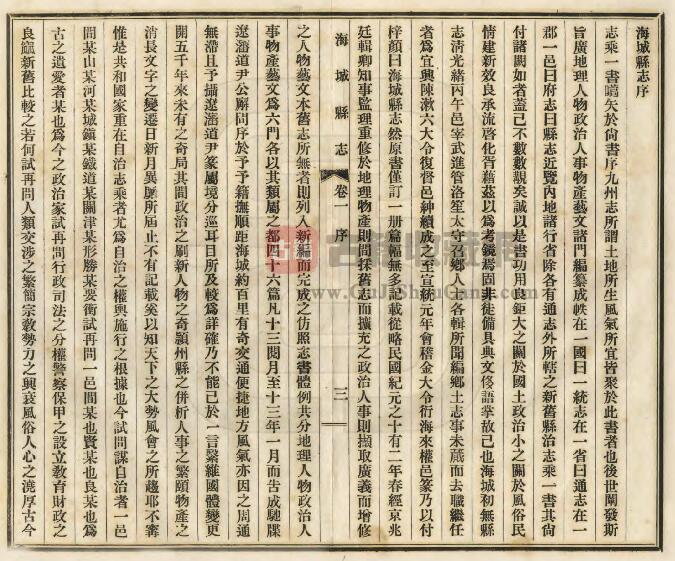 海城縣志序
志乘一書嚆矢於尙書序九州志所謂土地所生風氣所宜皆聚於此書者也後世闡發斯
旨廣地理人物政治人事物產藝文諸門編纂成帙在一國曰一統志在一省曰通志在一
郡一邑曰府志曰縣志近覽內地諸行省除各有通志外所轄之新舊縣治志乘一書其尙
付諸闕如者蓋已不數數覯矣誠以是書功用良鉅大之關於國土政治小之關於風俗民
情建新效良承流啓化胥藉茲以爲考鏡焉固非徒備具典文侈語掌故已也海城初無縣
志淸光緒丙午邑宰武進管洛笙太守召鄉人士各輯所聞編鄉土志事未蕆而去職繼任
者爲宜興陳漱六大令復督邑紳續成之至宣統元年會稽金大令衍海來權邑篆乃以付
梓顏曰海城縣志然原書僅訂一册篇幅無多記載從略民國紀元之十有二年春經京兆
廷輯卿知事監理重修於地理物產則間採舊志而擴充之政治人事則擷取廣義而增修
海城縣志
卷一
序
三
之人物藝文本舊志所無者則列入新編而完成之仿照志書體例共分地理人物政治人
事物產藝文爲六門各以其類屬之都四十六篇凡十三閱月至十三年一月而吿成馳牒
遼瀋道尹公廨問序於予予籍撫順距海城約百里有奇交通便捷地方風氣亦因之周通
無滯且予攝遼瀋道尹篆屬境分巡耳目所及較爲詳確乃不能已於一言緊維國體變更
開五千年來未有之奇局其間政治之刷新人物之奇穎州縣之併析人事之繁賾物產之
消長文字之變遷日新月異靡所屆止不有記載奚以知天下之大勢風會之所趨耶不寗
惟是共和國家重在自治志乘者尤爲自治之權輿施行之根據也今試問謀自治者一邑
間某山某河某城鎭某鐵道某關津某形勝某要衝試再問一邑間某也賢某也良某也爲
古之遺愛者某也爲今之政治家試再問行政司法之分權警察保甲之設立敎育財政之
良窳新舊比較之若何試再問人類交涉之繁簡宗敎勢力之興衰風俗人心之澆厚古今
古籍收藏網
www.GuJiShouCang.com